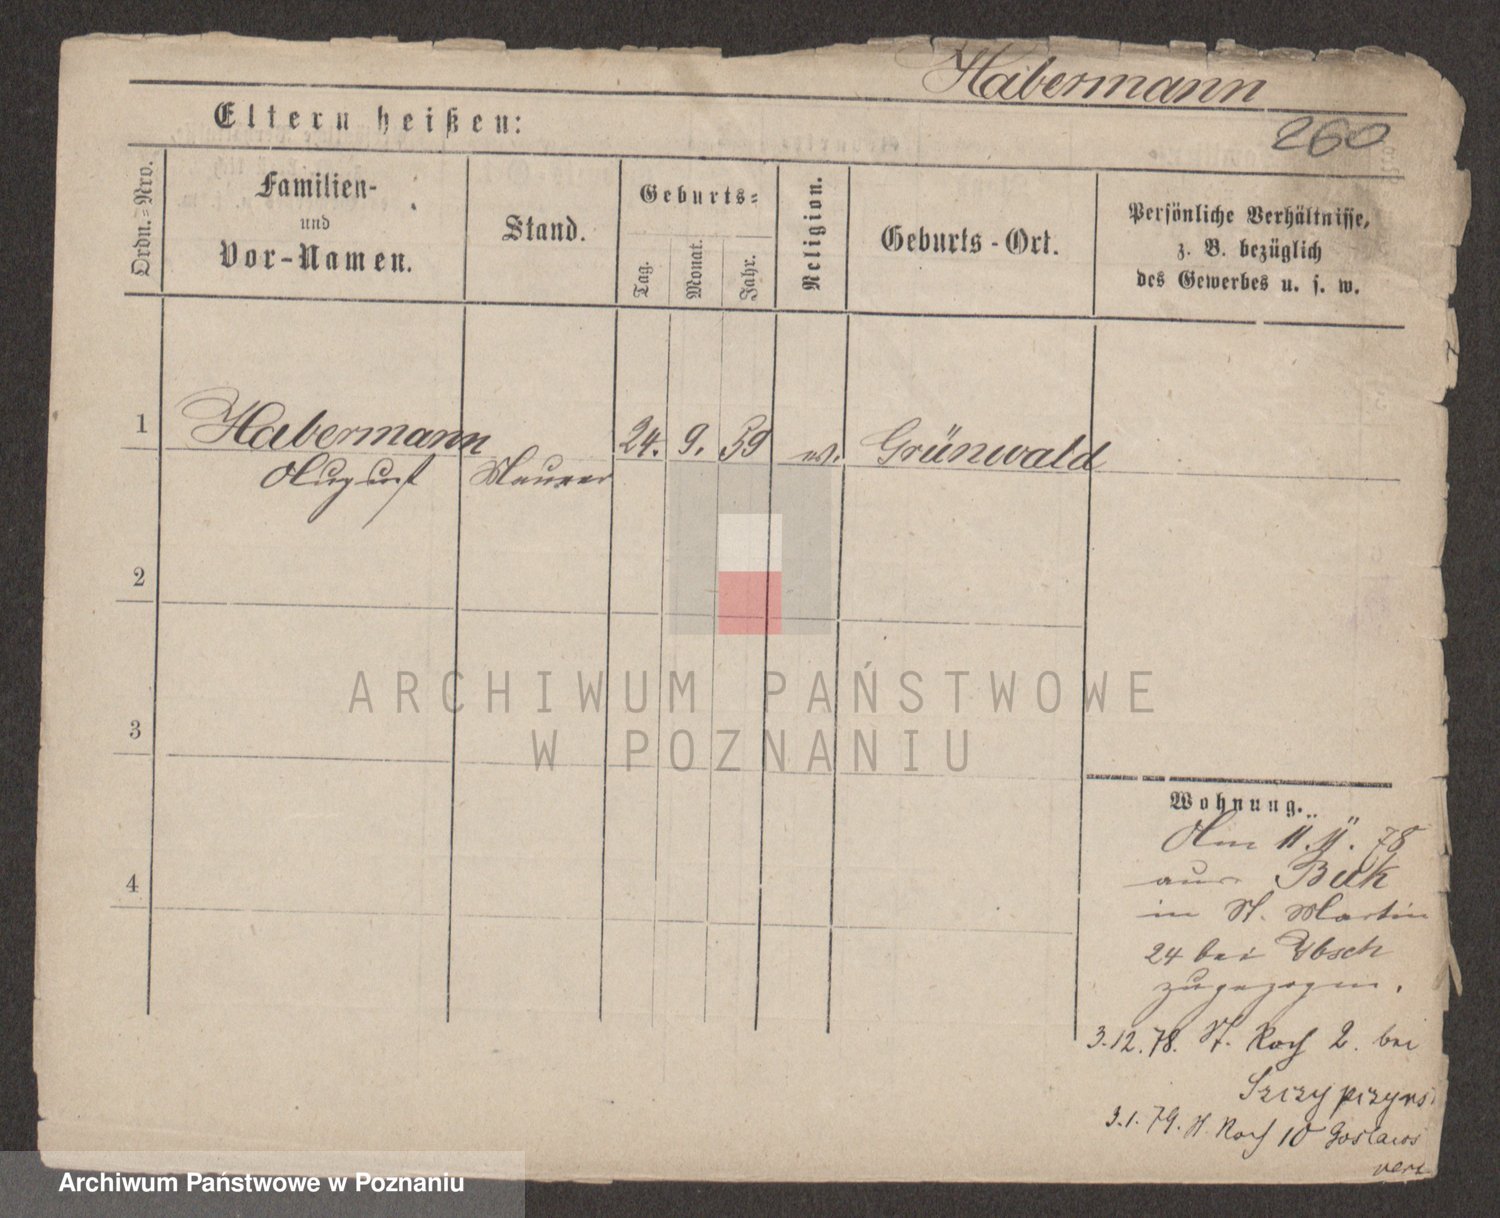 Habermann
260
Eltern heißen:
Ordn.=Nro.
Familien-
und
Vor-Namen.
Stand.
Geburts=
Tag.
Monat.
Jahr.
Religion.
Geburts-Ort.
Persönliche Verhältnisse,
z. B. bezüglich
des Gewerbes u. s. w.
1
Habermann
August
Maurer
24.
9.
59
ev.
Grünwald
2
3
4
ARCHIWUM PAŃSTWOWE
W POZNANIU
Wohnung.
Am 11. 11. 78
aus Buk
in St. Martin
24 bei
zugezogen.
3.12.78. St. Roch 2. bei
3.1.79. St. Roch 10
Archiwum Państwowe w Poznaniu